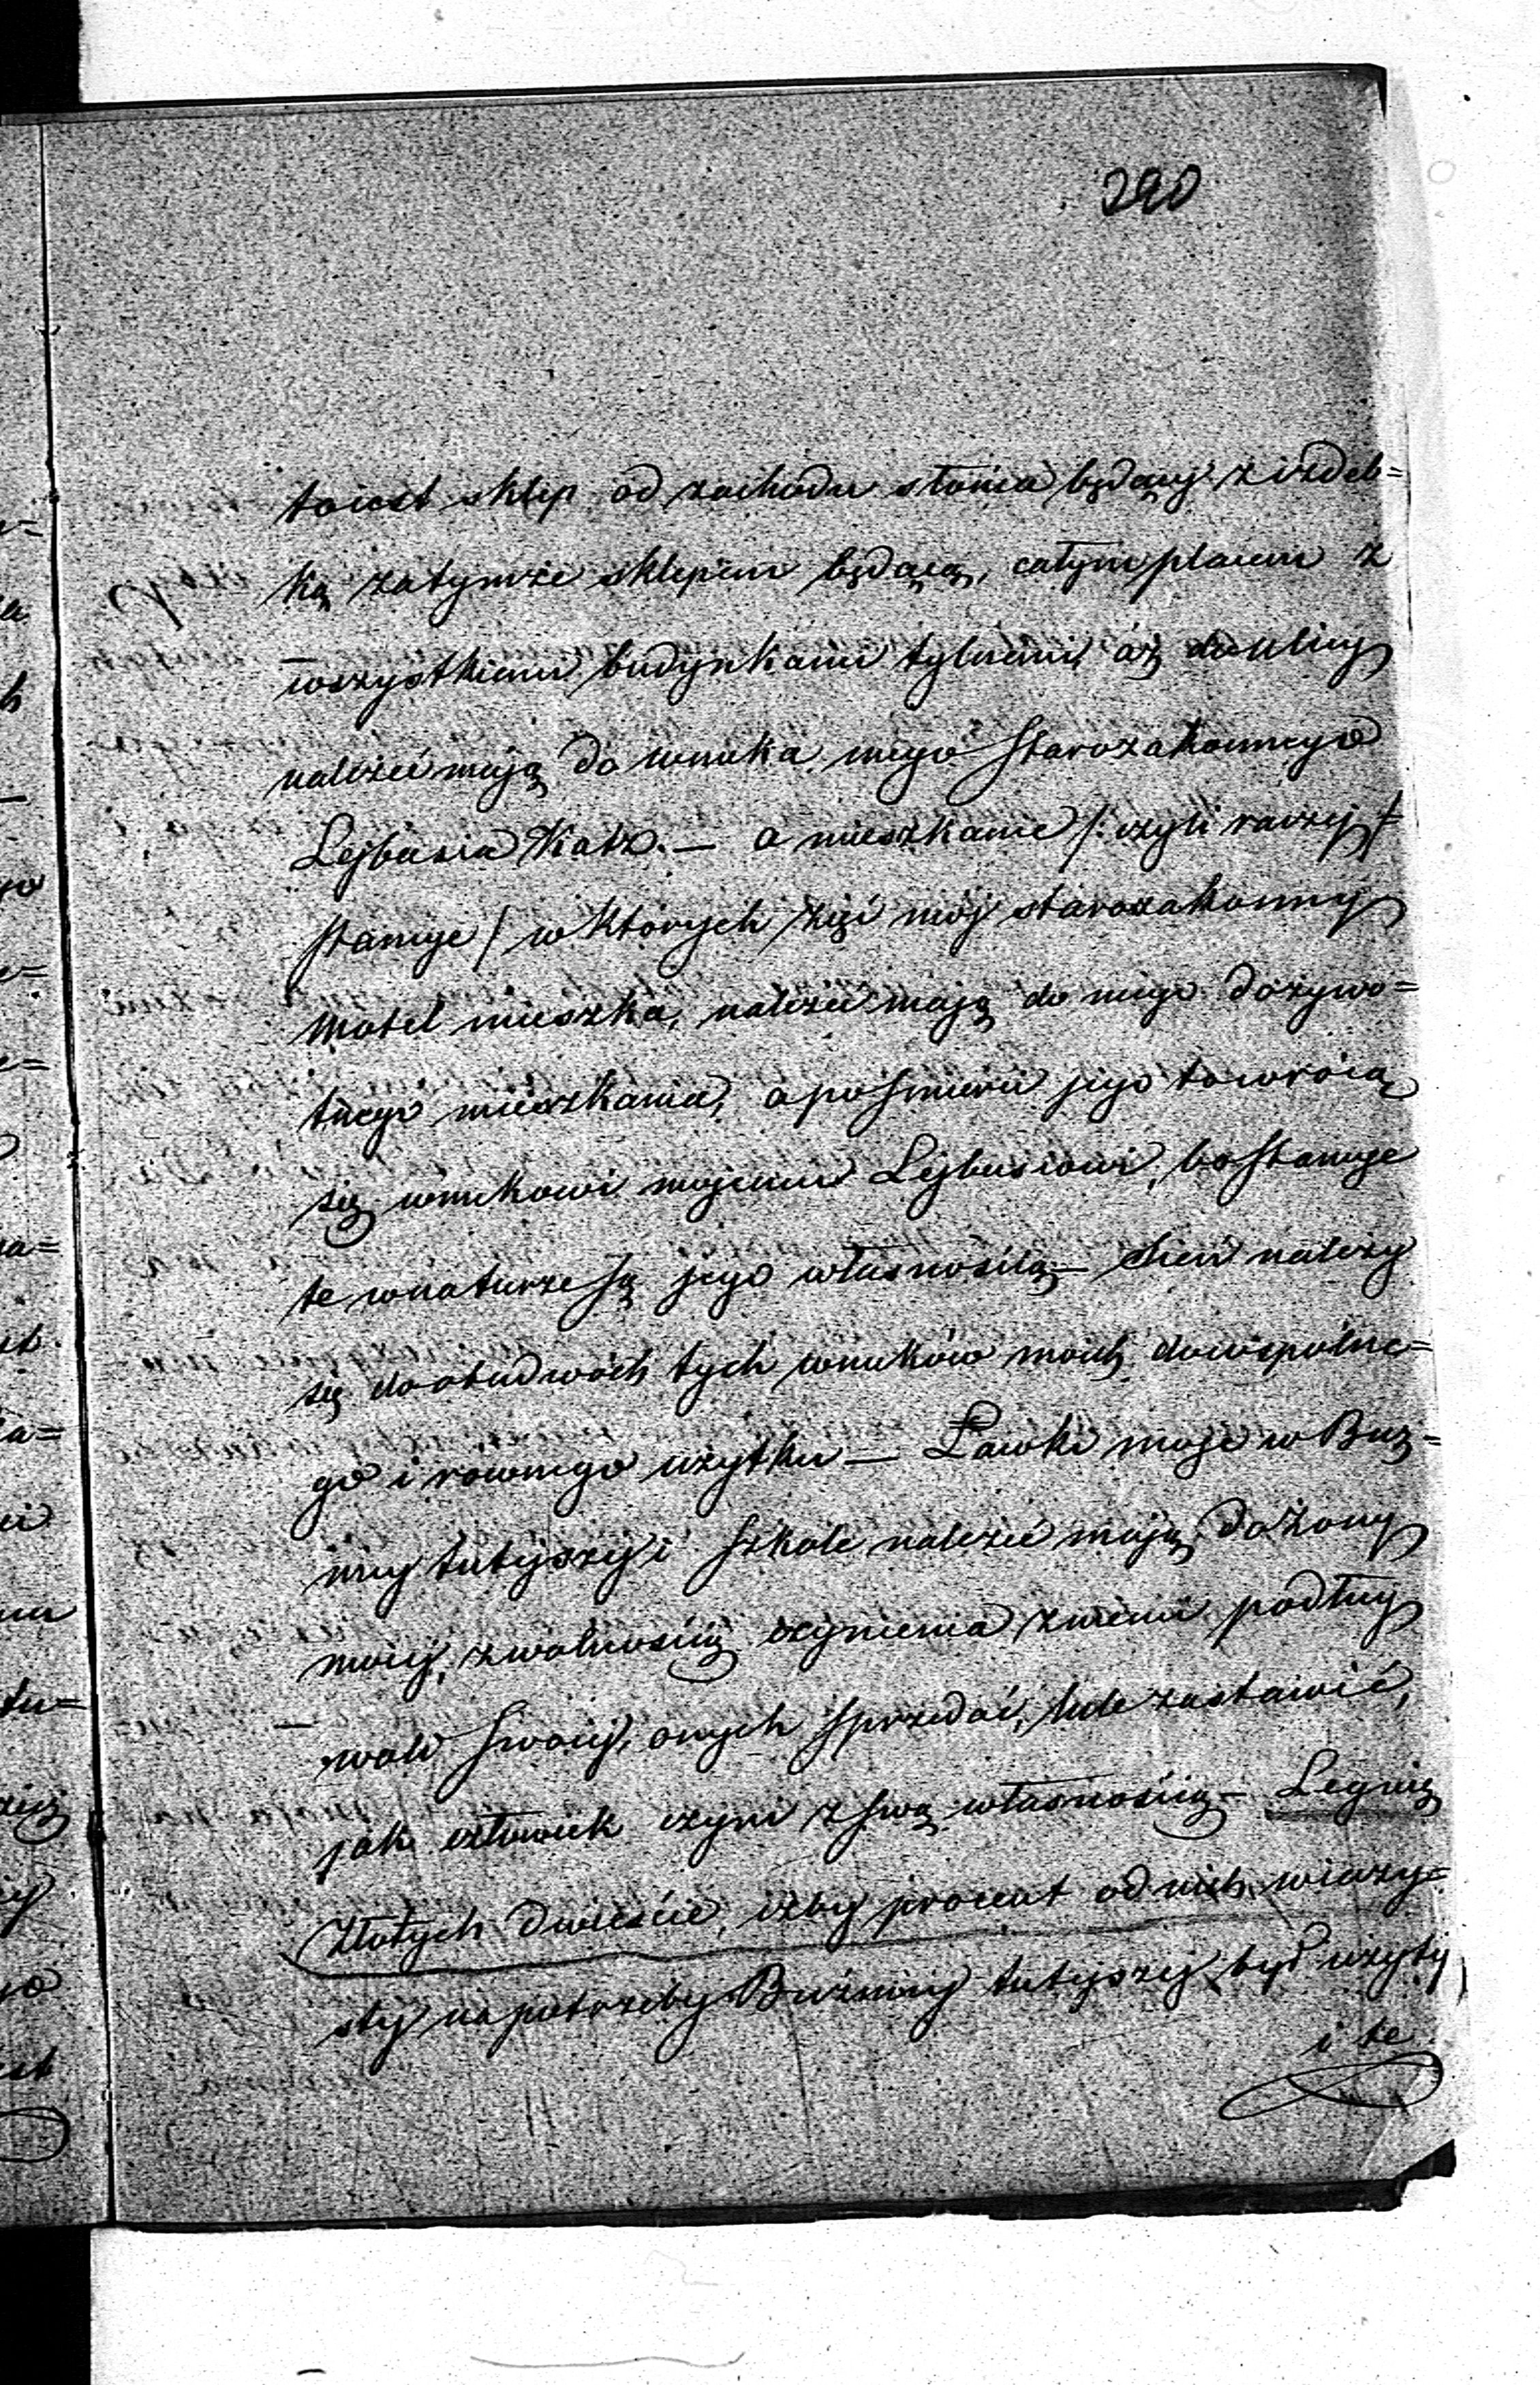 290
toiest sklep od zachodu słońca będący z izdeb=
ką zatymże sklepem będącą, całym placem z
wszystkiemi budynkami tylnemi aż do ulicy
należeć mają do wnuka mego starozakonnego
Lejbusia Katz. — a mieszkanie /: czyli raczej
stancye / w których zięć mój starozakonny
Motel mieszka, należeć mają do niego dożywo=
tnego mieszkania, a pośmierci jego powrócą
się wnukowi mojemu Lejbusiowi, bo stancye
te wnaturze są jego własnością — Sień należy
się do obudwóch tych wnuków moich dowspólne=
go i równego użytku — Ławki moje w Buż=
nicy tutejszej i szkole należeć mają do żony
mojej, zwolnością czynienia zniemi podług
woli swojej, onych sprzedać, lub zastawić,
jak człowiek czyni z swą własnością — Leguię
Złotych dwieście, iżby procent od nich wieczy=
sty na potrzeby Bużnicy tutejszej był użyty
i te